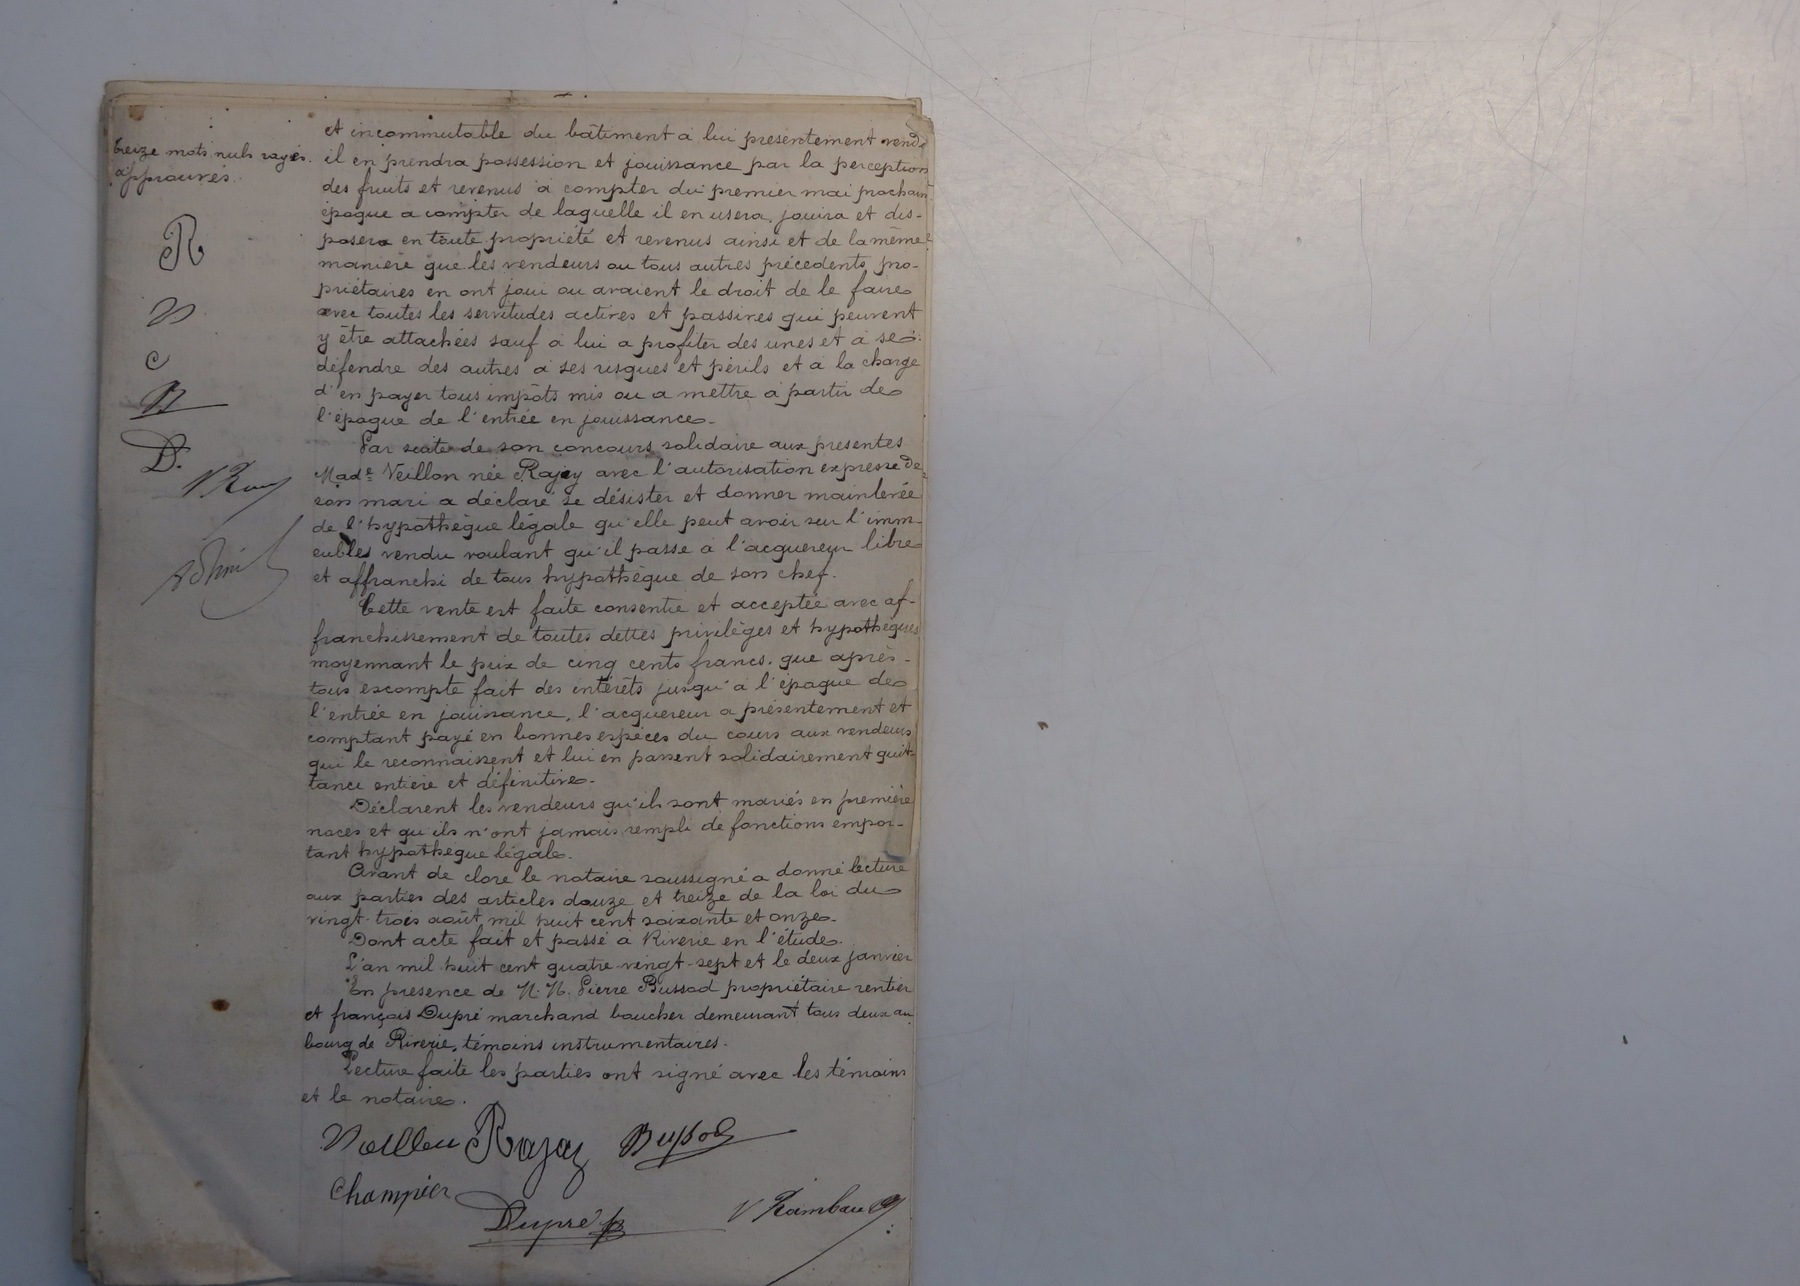 treize mots nuls rayés.
approuvés.
R
V
C
B
D.
et incommutable du bâtiment a lui présentement vendu
il en prendra possession et jouissance par la perception
des fruits et revenus a compter du premier mai prochain
époque a compter de laquelle il en usera, jouira et dis-
posera en toute propriété et revenus ainsi et de la même
manière que les vendeurs ou tous autres précédents pro-
priétaires en ont joui ou avaient le droit de le faire
avec toutes les servitudes actives et passives qui peuvent
y être attachées sauf a lui a profiter des unes et à se
défendre des autres a ses risques et périls et a la charge
d'en payer tous impôts mis ou a mettre a partir de
l'époque de l'entrée en jouissance.
Par suite de son concours solidaire aux présentes
Made Veillon née Rajey avec l'autorisation expresse de
son mari a déclaré se désister et donner mainlevée
de l'hypothèque légale qu'elle peut avoir sur l'imm-
eubles vendu voulant qu'il passe a l'acquereur libre
et affranchi de tous hypothèque de son chef.
Cette vente est faite consentie et acceptée avec af-
franchissement de toutes dettes privilèges et hypothèques
moyennant le prix de cinq cents francs. que après
tous escompte fait des intérêts jusqu'a l'époque de
l'entrée en jouissance, l'acquereur a présentement et
comptant payé en bonnes espèces du cours aux vendeurs
qui le reconnaissent et lui en passent solidairement quit-
tance entière et définitive.
Déclarent les vendeurs qu'ils sont mariés en première
noces et qu'ils n'ont jamais rempli de fonctions empor-
tant hypothèque légale.
Avant de clore le notaire soussigné a donné lecture
aux parties des articles douze et treize de la loi du
vingt-trois août mil huit cent soixante et onze.
Dont acte fait et passé a Riverie en l'étude.
L'an mil huit cent quatre-vingt-sept et le deux janvier
En présence de M.M. Pierre Bussod propriétaire rentier
et françois Dupré marchand boucher demeurant tous deux au
bourg de Riverie, témoins instrumentaires.
Lecture faite les parties ont signé avec les témoins
et le notaire.
Veillon Rajey Bussod
Champier
Dupré V Raimbaud